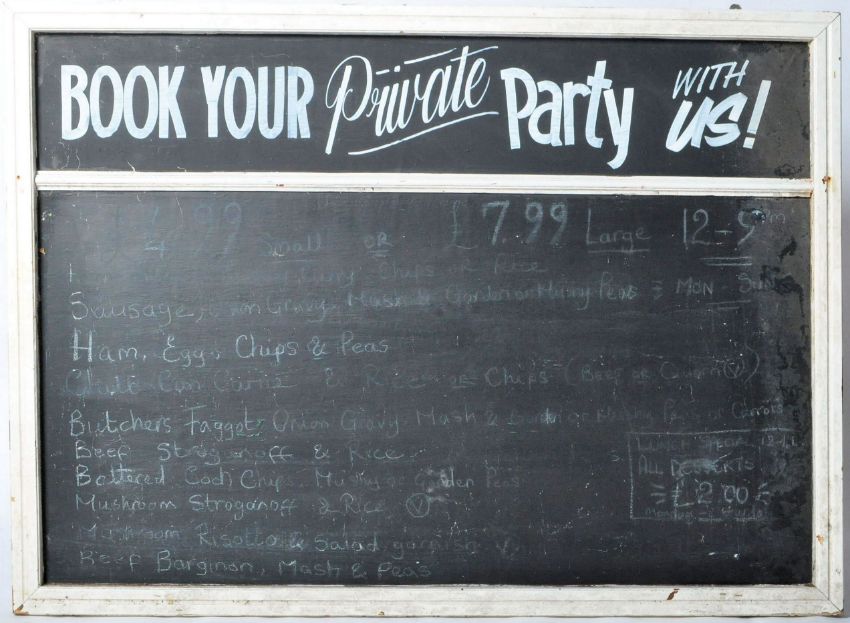 BOOK YOUR Private Party WITH US!
£4.99 Small OR £7.99 Large 12-9pm
Curry Chips or Rice
Sausage, Onion Gravy, Mash & Garden or Mushy Peas = MON - SUN
Ham, Egg, Chips & Peas
Chilli Con Carne & Rice or Chips (Beef or Quorn (V))
Butchers Faggots Onion Gravy, Mash & Garden or Mushy Peas or Carrots
Beef Stroganoff & Rice
Battered Cod, Chips, Mushy or Garden Peas
Mushroom Stroganoff & Rice (V)
Mushroom Risotto & Salad garnish V
Beef Barginon, Mash & Peas
SPECIAL 12-
ALL DESSERTS
£2.00
Monday